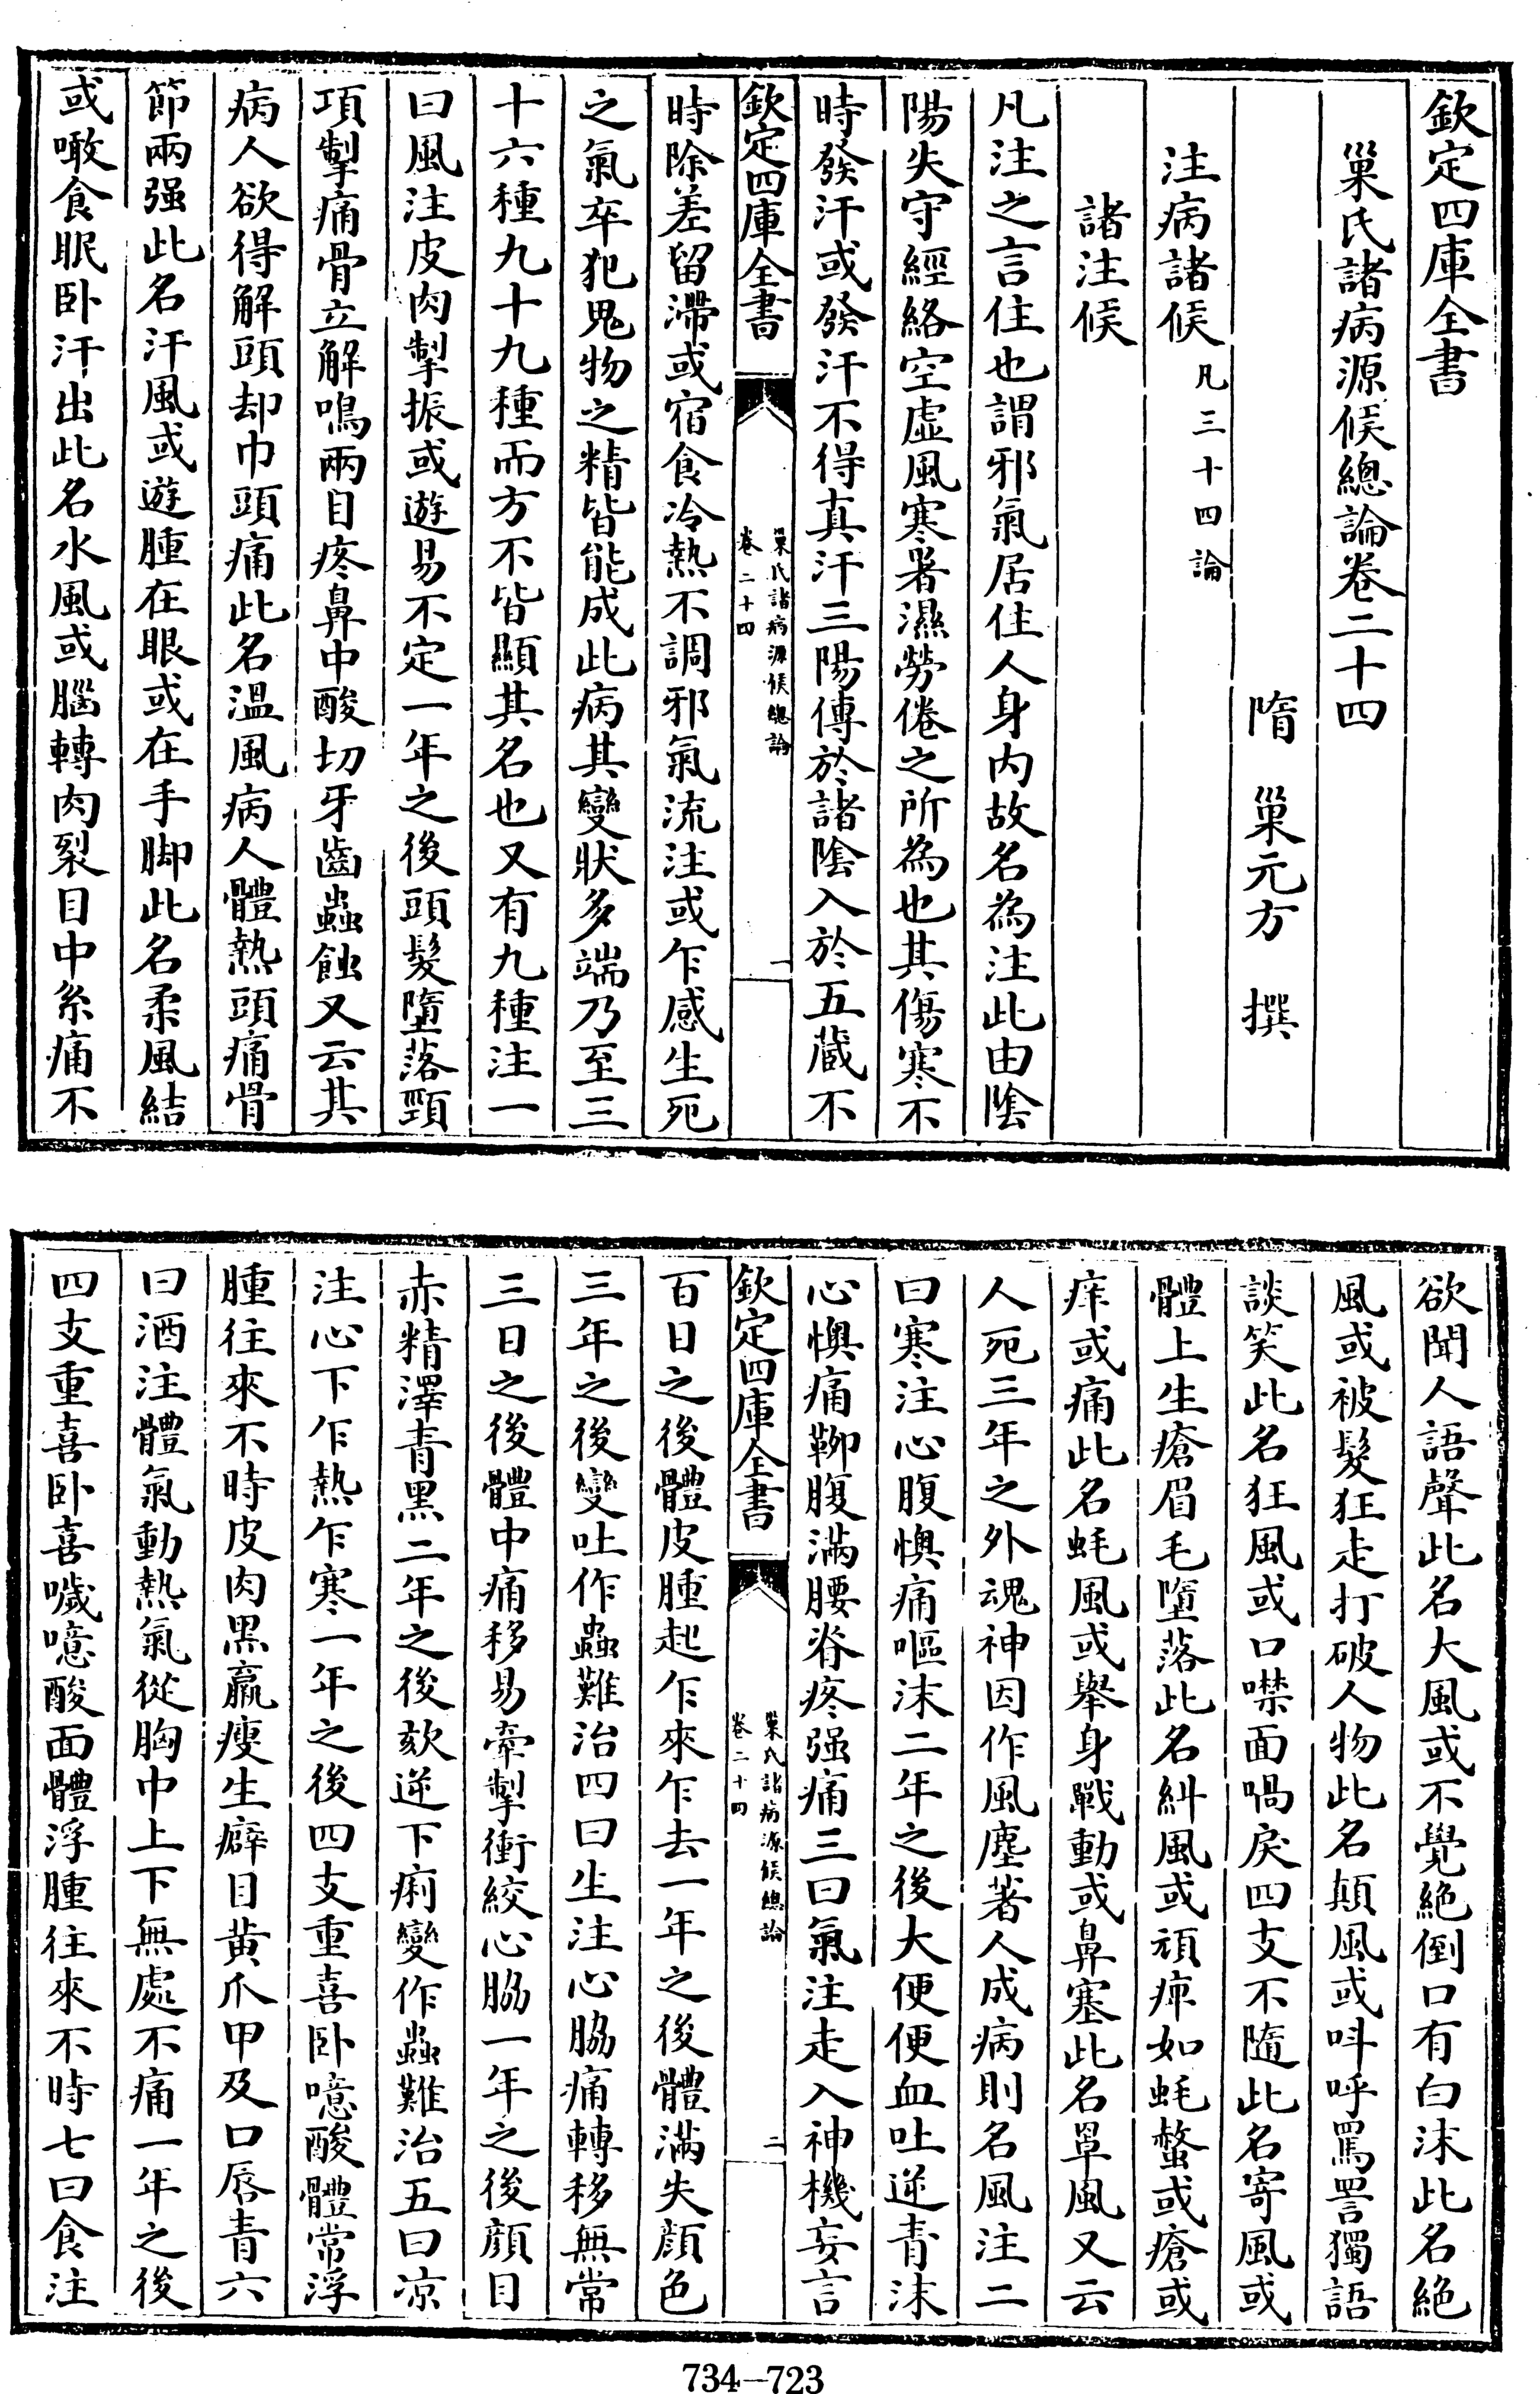 欽定四庫全書
巢氏諸病源候總論卷二十四
隋　巢元方　撰
注病諸候凡三十四論
諸注候
凡注之言住也謂邪氣居住人身内故名為注此由陰
陽失守經絡空虛風寒暑濕勞倦之所為也其傷寒不
時發汗或發汗不得真汗三陽傳於諸陰入於五藏不
欽定四庫全書
巢氏諸病源候總論
卷二十四
一
時除差留滯或宿食冷熱不調邪氣流注或乍感生死
之氣卒犯鬼物之精皆能成此病其變狀多端乃至三
十六種九十九種而方不皆顯其名也又有九種注一
曰風注皮肉掣振或遊易不定一年之後頭髮墮落頸
項掣痛骨立解鳴兩目疼鼻中酸切牙齒蟲蝕又云其
病人欲得解頭却巾頭痛此名温風病人體熱頭痛骨
節兩强此名汗風或遊腫在眼或在手脚此名柔風結
或噉食眠卧汗出此名水風或腦轉肉裂目中系痛不
欲聞人語聲此名大風或不覺絶倒口有白沫此名絶
風或被髮狂走打破人物此名顛風或呌呼罵詈獨語
談笑此名狂風或口噤面喎戾四支不隨此名寄風或
體上生瘡眉毛墮落此名糾風或頑痹如蚝螫或瘡或
痒或痛此名蚝風或舉身戰動或鼻塞此名罩風又云
人死三年之外魂神因作風塵著人成病則名風注二
曰寒注心腹懊痛嘔沫二年之後大便便血吐逆青沫
心懊痛鞕腹滿腰脊疼强痛三曰氣注走入神機妄言
欽定四庫全書
巢氏諸病源候總論
卷二十四
二
百日之後體皮腫起乍來乍去一年之後體滿失顔色
三年之後變吐作蟲難治四曰生注心脇痛轉移無常
三日之後體中痛移易牽掣衝絞心脇一年之後顔目
赤精澤青黑二年之後欬逆下痢變作蟲難治五曰凉
注心下乍熱乍寒一年之後四支重喜卧噫酸體常浮
腫往來不時皮肉黑羸瘦生癖目黄爪甲及口唇青六
曰酒注體氣動熱氣從胸中上下無處不痛一年之後
四支重喜卧喜噦噫酸面體浮腫往來不時七曰食注
734—723